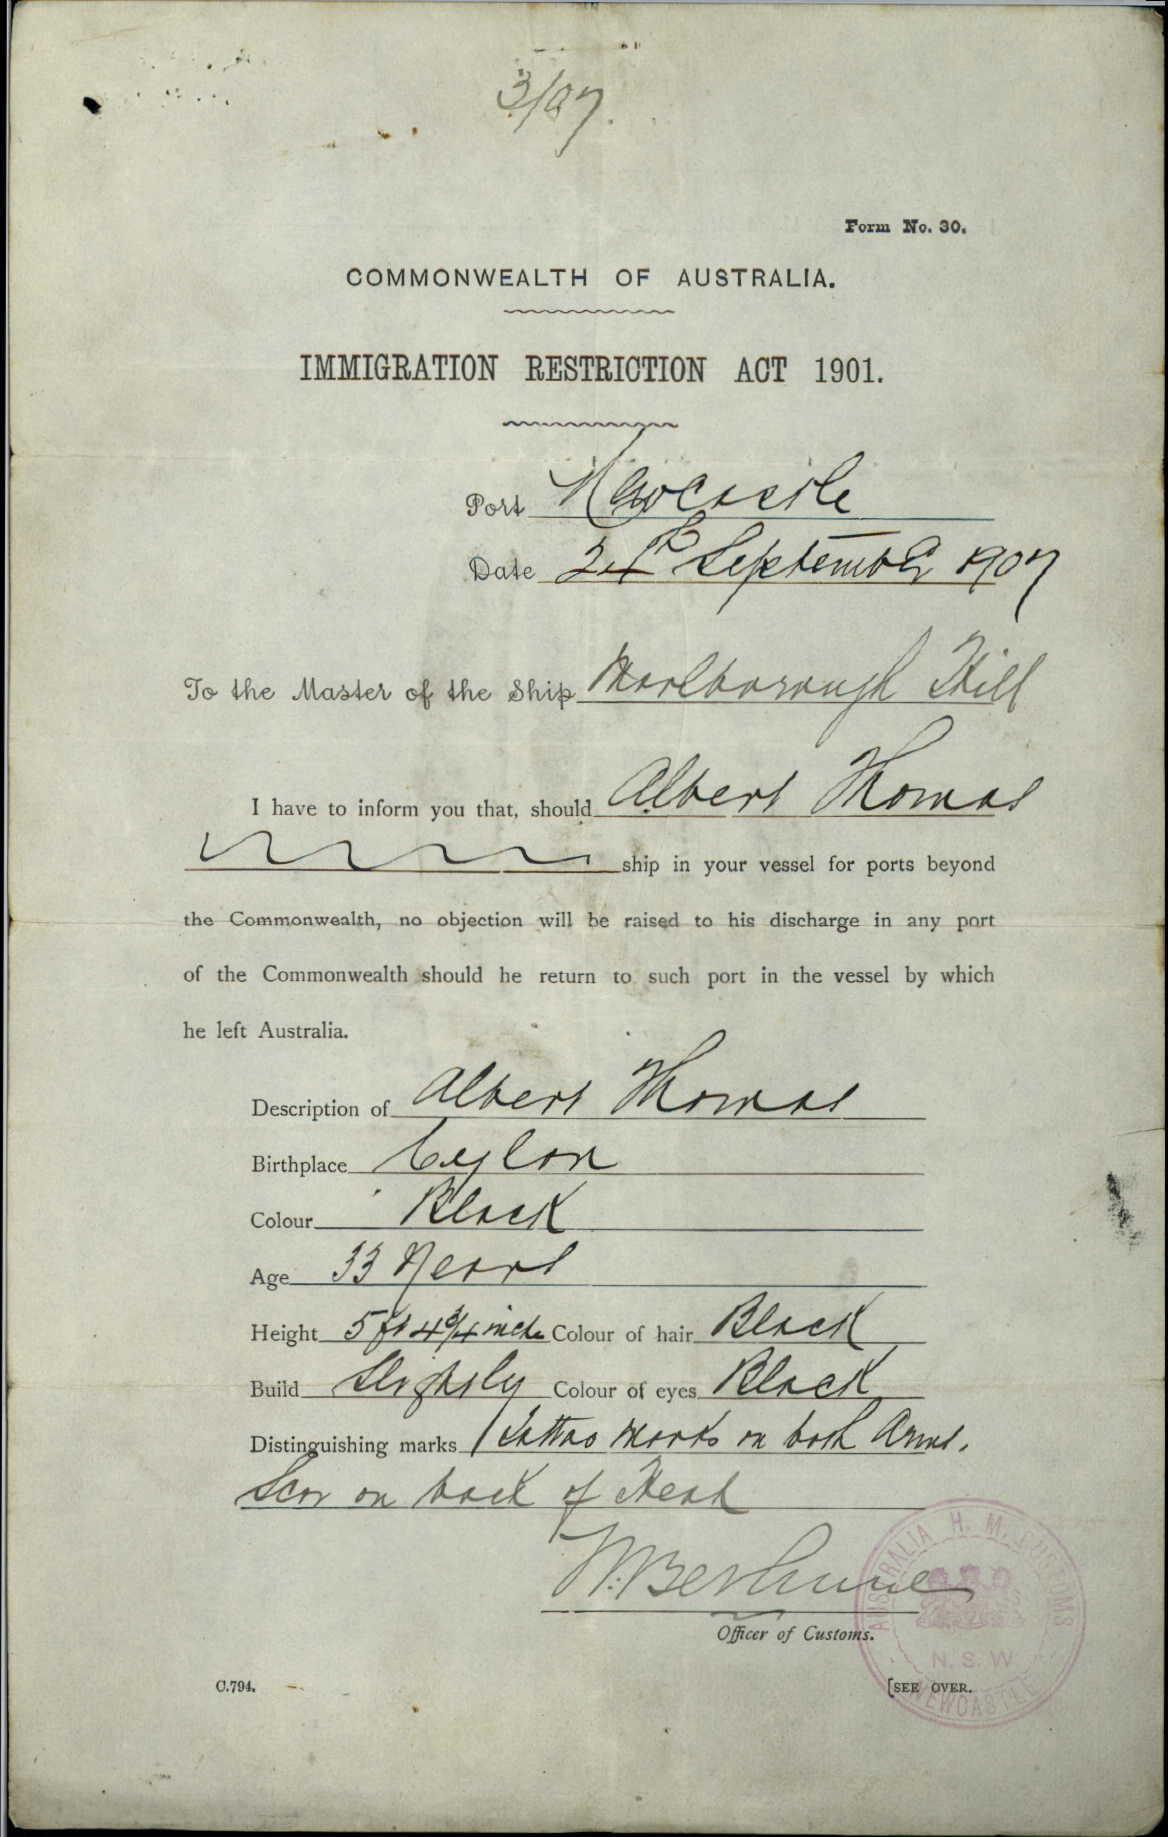 3/07.
Form No. 30.
COMMONWEALTH OF AUSTRALIA.
IMMIGRATION RESTRICTION ACT 1901.
Port Newcastle
Date 24th September 1907
To the Master of the Ship Marlborough Hill
I have to inform you that, should Albert Thomas
ship in your vessel for ports beyond
the Commonwealth, no objection will be raised to his discharge in any port
of the Commonwealth should he return to such port in the vessel by which
he left Australia.
Description of Albert Thomas
Birthplace Ceylon
Colour Black
Age 33 Years
Height 5 ft 4 3/4 inch Colour of hair Black
Build Slightly Colour of eyes Black
Distinguishing marks Tattoo Marks on both Arms.
Scar on back of Head
AUSTRALIA H. M. CUSTOMS
N. S. W
NEWCASTLE
Officer of Customs.
C.794.
[SEE OVER.